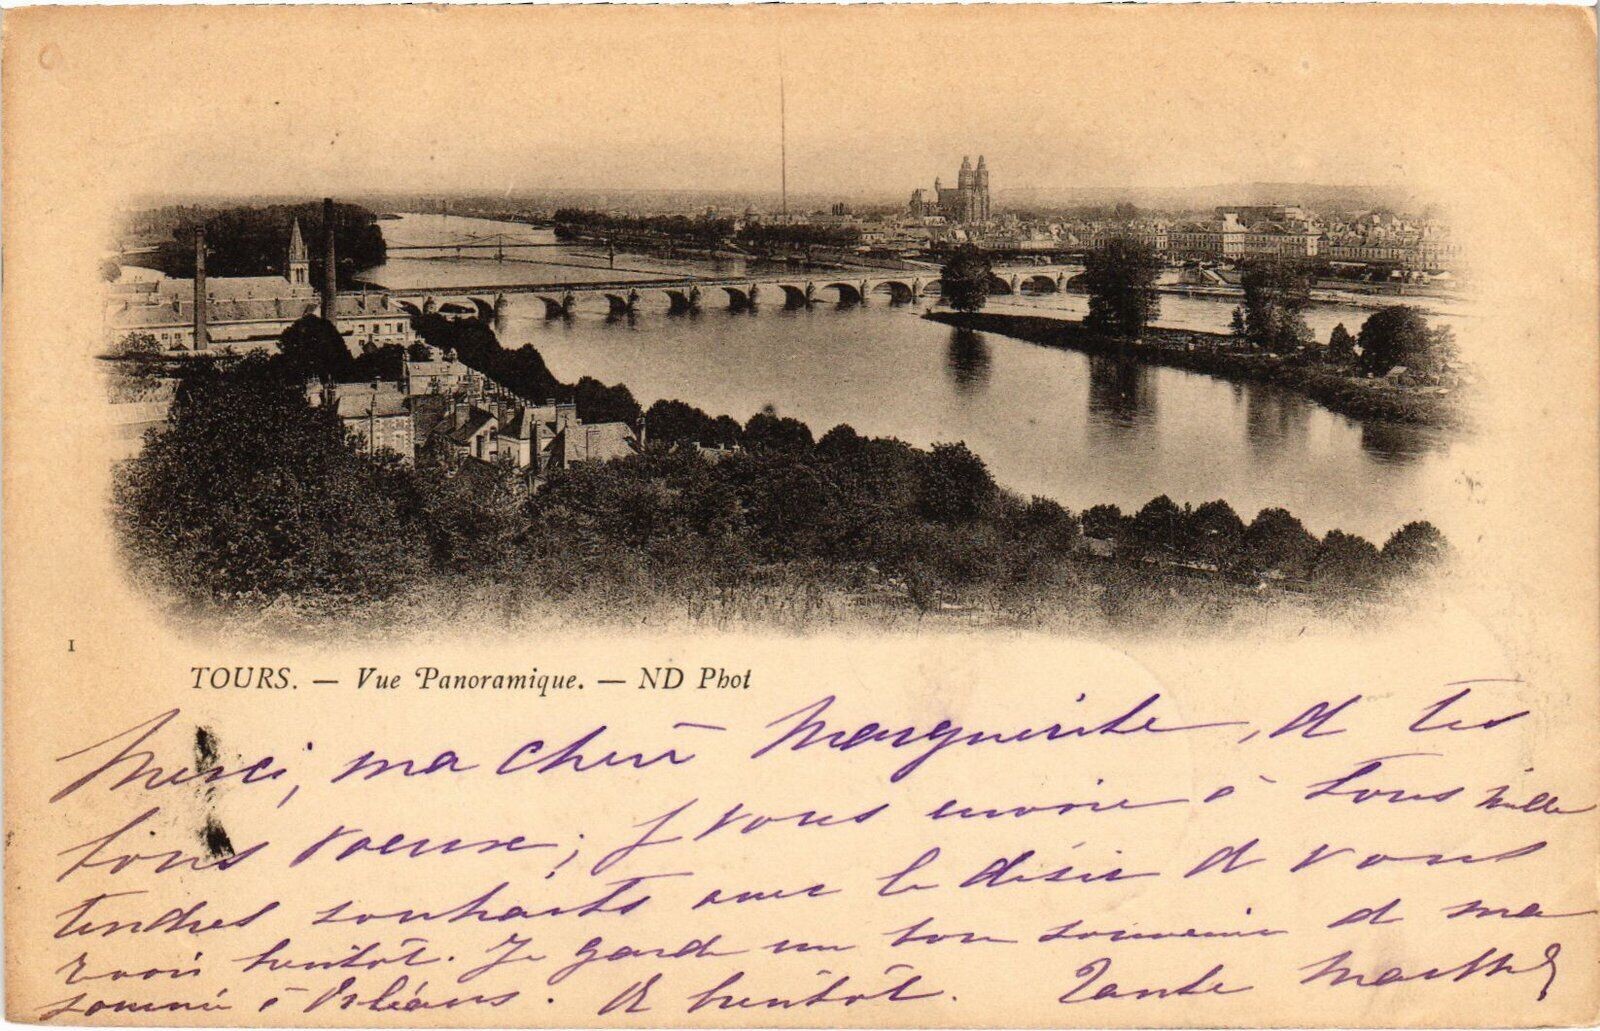 1
TOURS. — Vue Panoramique. — ND Phot
Merci, ma chère Marguerite, de tes
bons vœux; je vous envoie à tous mille
tendres souhaits avec le désir de vous
revoir bientôt. Je garde un bon souvenir de ma
à Orléans. A bientôt. Tante Marthe